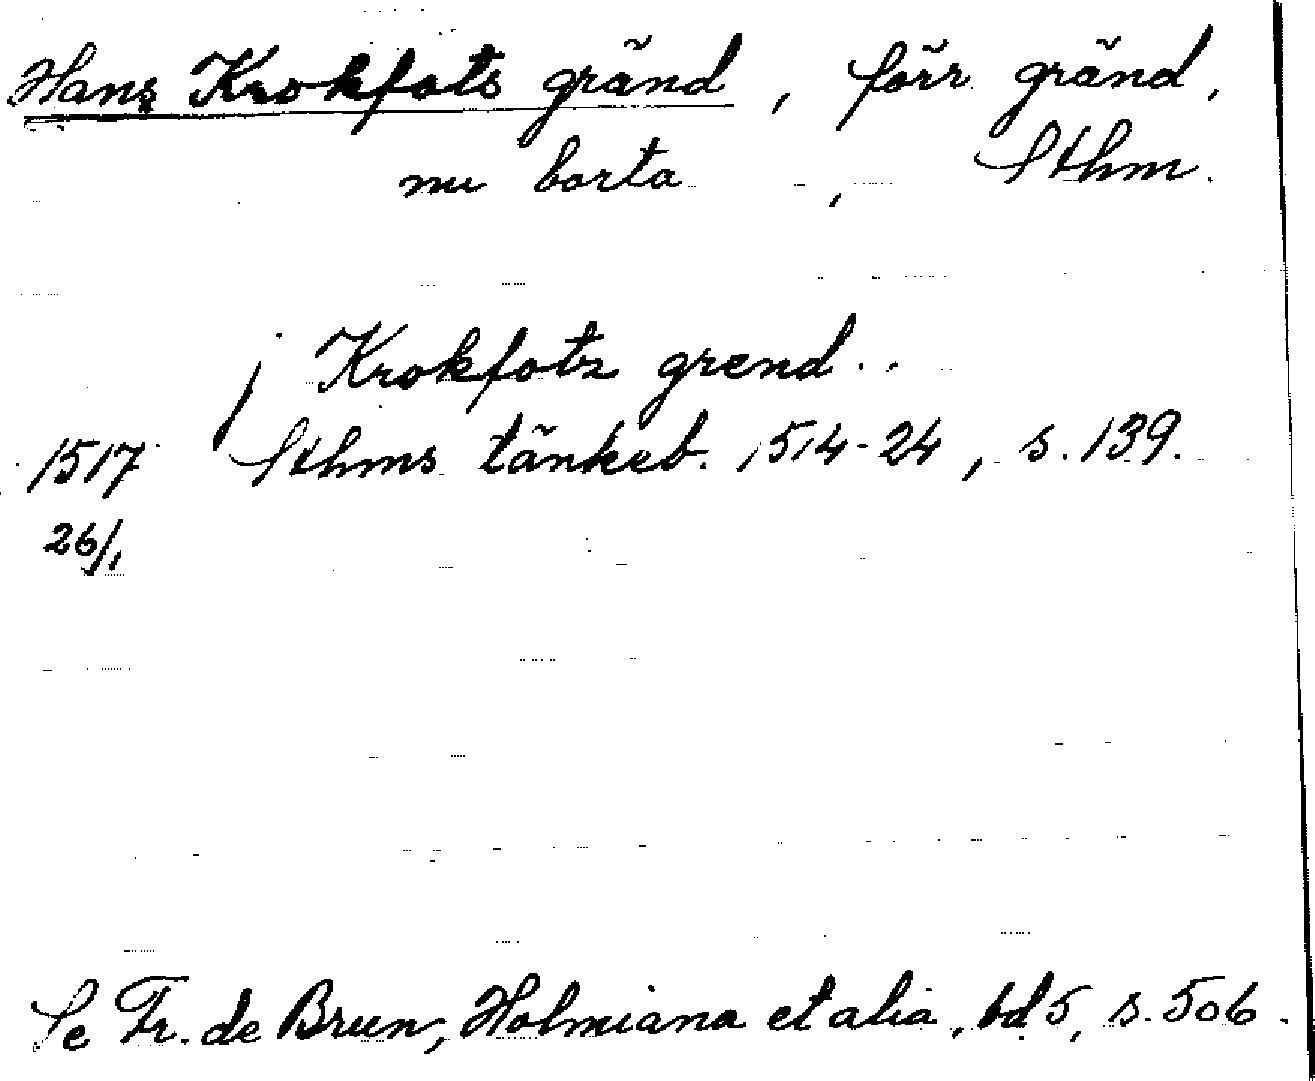 Hans Krokfots gränd, förr gränd,
nu borta, Sthm.
j Krokfotz grend..
1517 Sthms tänkeb. 1514-24, s. 139.
26/1
Se Fr. de Brun, Holmiana et alia, bd 5, s. 506.